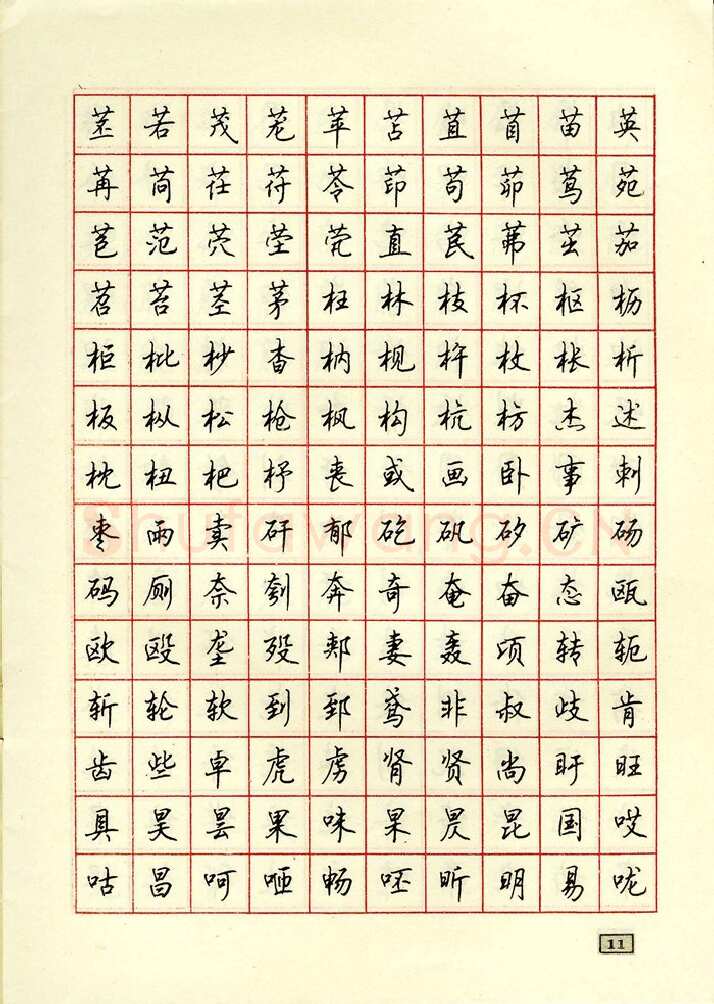 苤若茂茏苹苫苴苜苗英
苒苘茌苻苓茚苟茆茑苑
苞范茓茔茕直苠茀茁茄
苕苔茎茅枉林枝杯枢枥
柜枇杪杳枘枧杵枚枨析
板枞松枪枫构杭枋杰述
枕杻杷杼丧或画卧事刺
枣雨卖矸郁矻矾矽矿砀
码厕奈刳奔奇奄奋态瓯
欧殴垄殁郏妻轰顷转轭
斩轮软到郅鸢非叔歧肯
齿些卓虎虏肾贤尚盱旺
具昊昙果味杲炅昆国哎
咕昌呵咂畅呸昕明易咙
11
Shufawang.CN